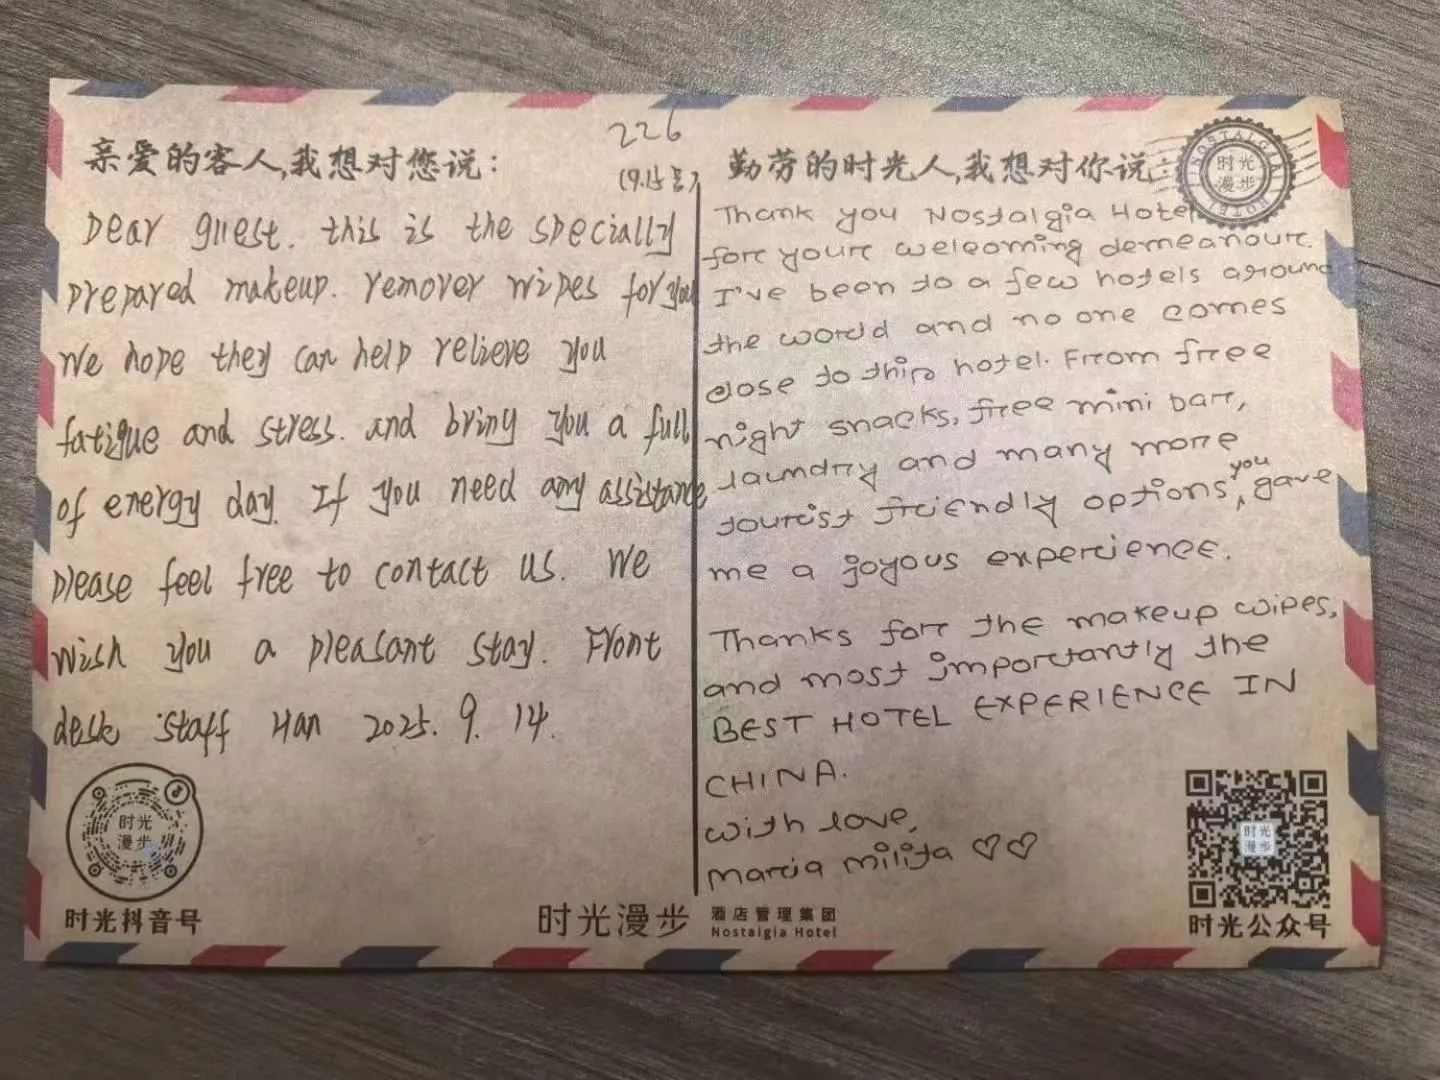 226
亲爱的客人,我想对您说:
Dear guest. this is the specially
prepared makeup. remover wipes for you
We hope they can help relieve you
fatigue and stress. and bring you a full
of energy day. If you need any assistance
please feel free to contact us. We
wish you a pleasant stay. Front
desk staff Han 2025. 9. 14.
时光
漫步
时光抖音号
勤劳的时光人,我想对你说:
NOSTALGIA
时光
漫步
HOTEL
Thank you Nostalgia Hotel
for your welcoming demeanour.
I've been to a few hotels around
the world and no one comes
close to this hotel. From free
night snacks, free mini bar,
laundry and many more
tourist friendly options, you gave
me a joyous experience.
Thanks for the makeup wipes,
and most importantly the
BEST HOTEL EXPERIENCE IN
CHINA.
with love,
Maria Milita ♡♡
时光
漫步
时光公众号
时光漫步 酒店管理集团
Nostalgia Hotel